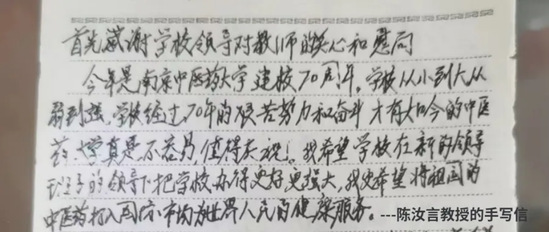 首先感谢学校领导对教师的关心和慰问
今年是南京中医药大学建校70周年,学校从小到大从
弱到强,学校经过70年的艰苦努力和奋斗才有如今的中医
药大学真是不容易,值得庆祝!我希望学校在新的领导
班子的领导下把学校办得更好更强大,我更希望将祖国的
中医药打入国际市场为世界人民的健康服务。 ---陈汝言教授的手写信